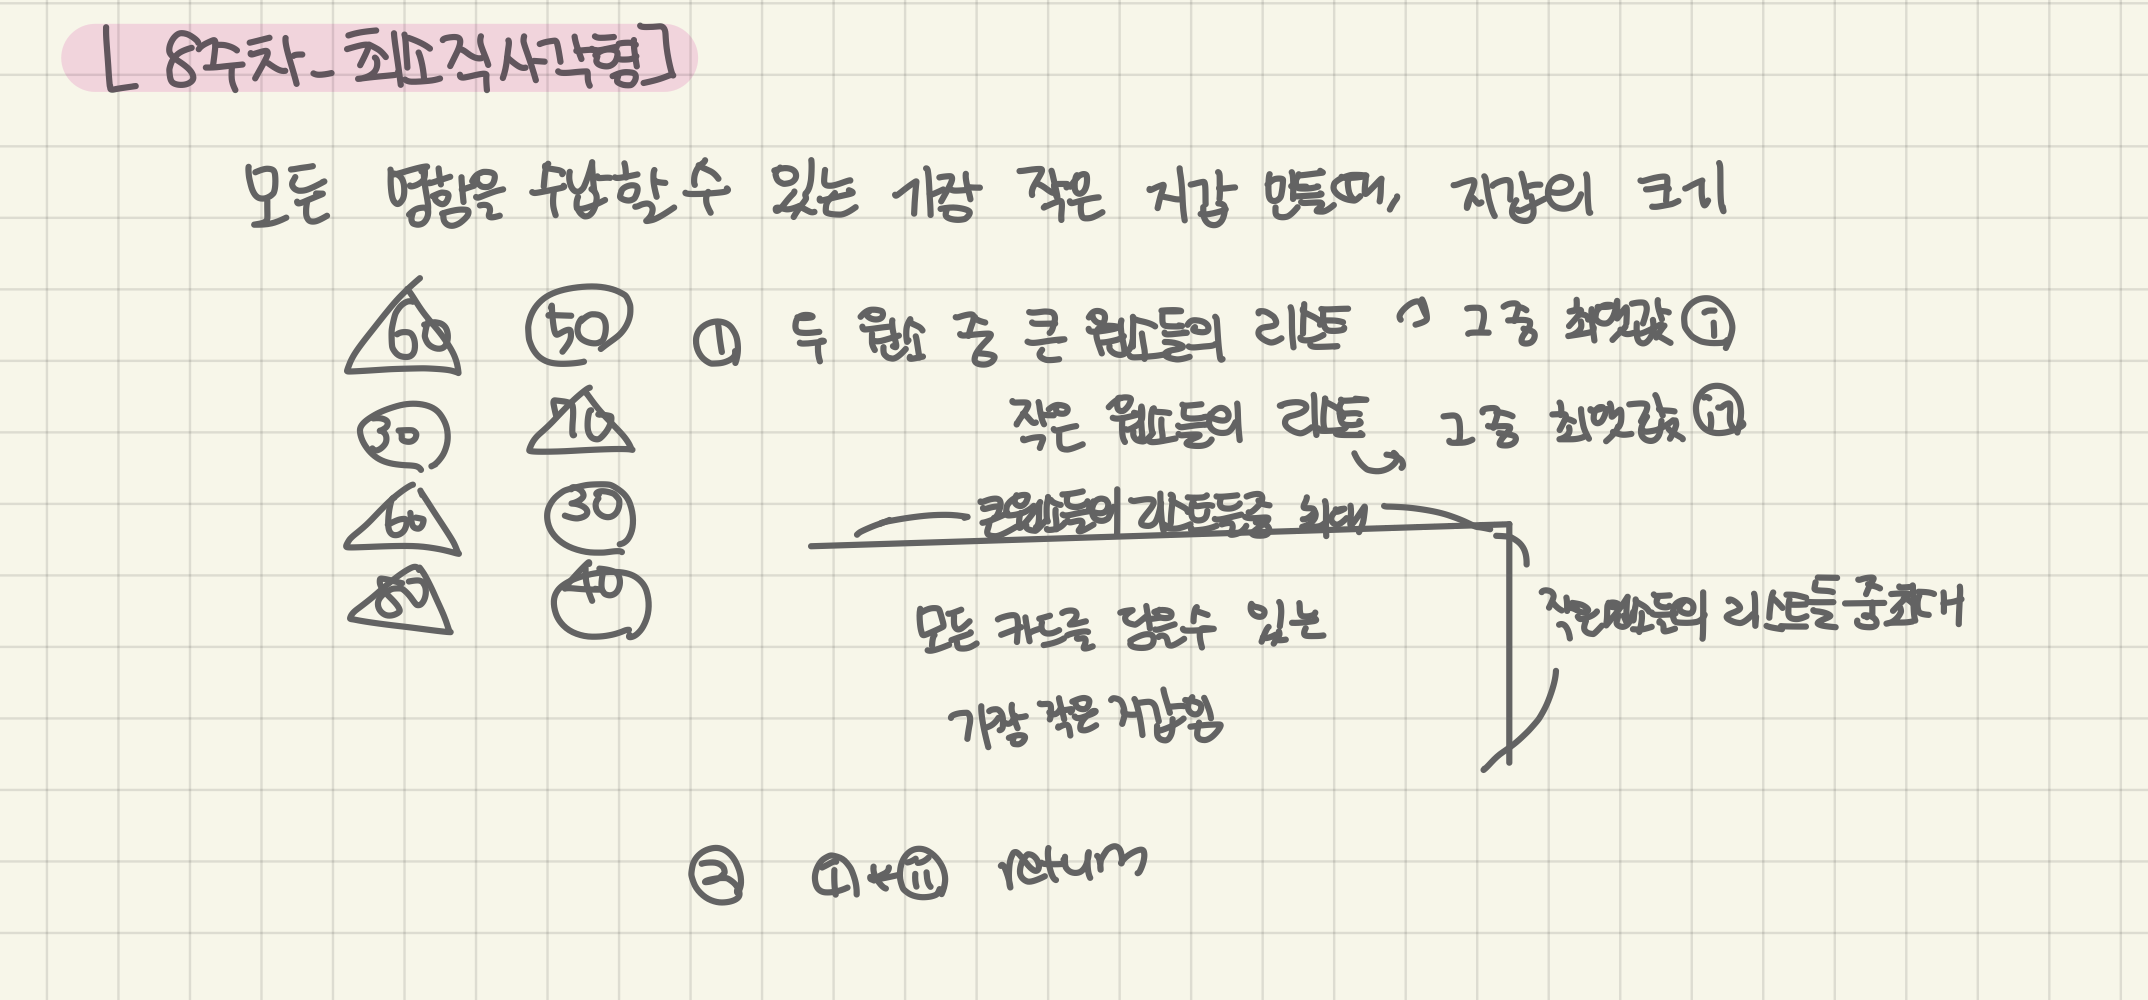 [ 8주차_최소직사각형]
모든 명함을 수납할 수 있는 가장 작은 지갑 만들때, 지갑의 크기
60 50 ① 두 원소 중 큰 원소들의 리스트 그 중 최댓값 ⓘ
30 70 작은 원소들의 리스트 그 중 최댓값 ⅱ
60 30 큰원소들의 리스트들중 최대
80 40
작은원소들의 리스트들중최대
모든 카드를 담을수 있는
가장 작은 지갑임
② ⓘ * ⅱ return